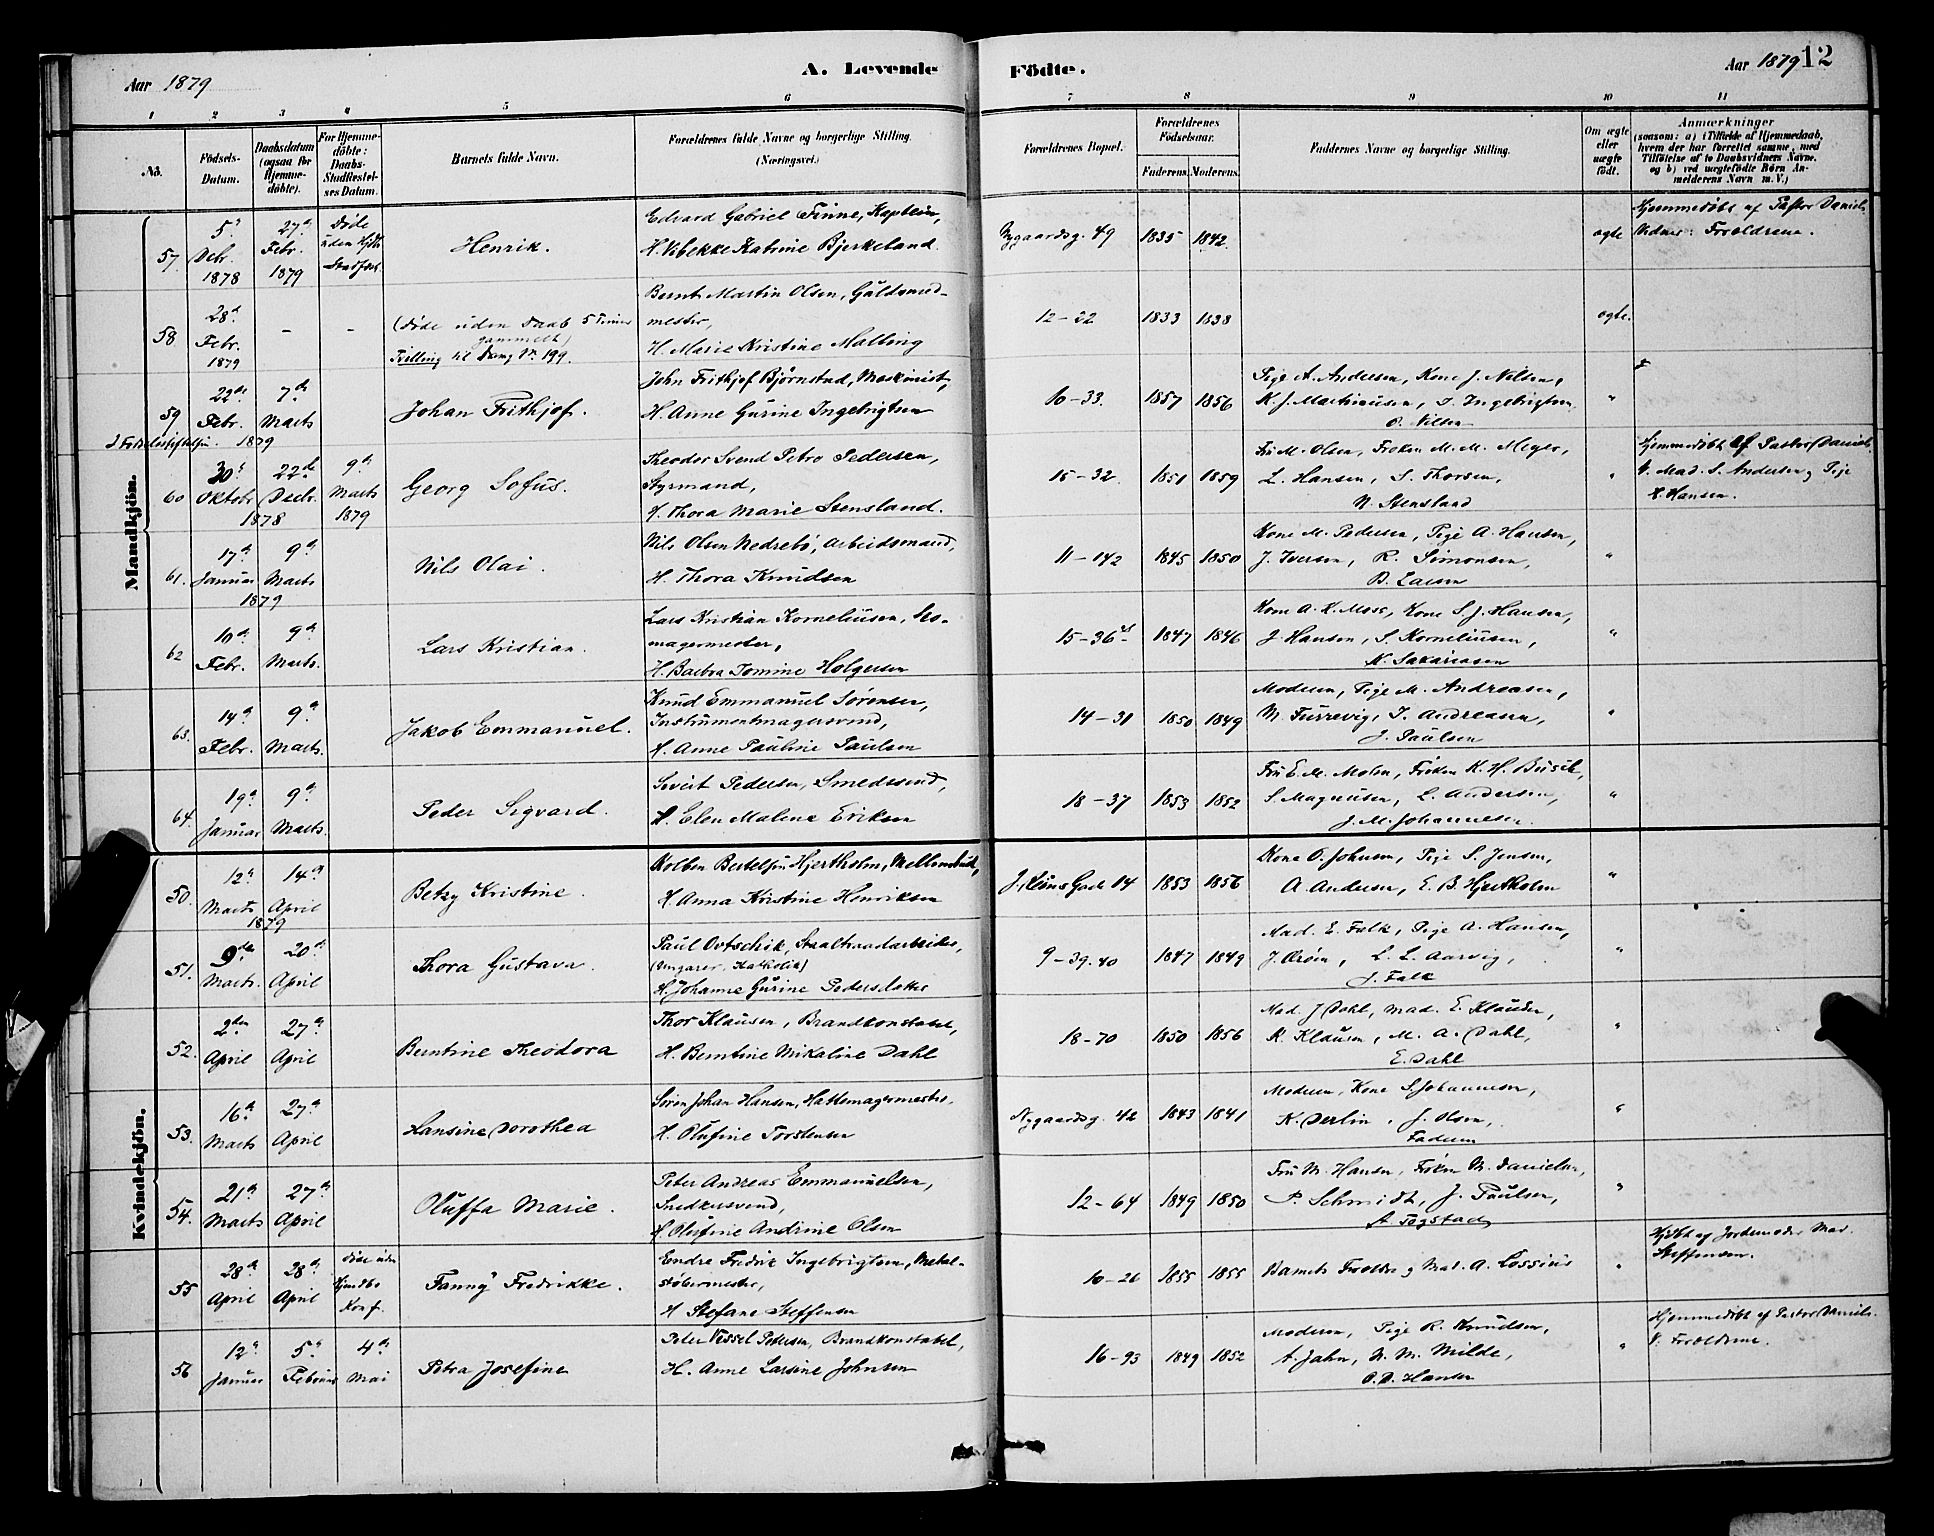 Aar 1879
A. Levende Födte.
Aar 1879 12
1 2 3 4 5 6 7 8 9 10 11
No.
Födsels-
Datum.
Daabsdatum
(ogsaa for
Hjemme-
döbte).
For Hjemme-
döbte:
Daabs-
Stadfæstel-
ses Datum.
Barnets fulde Navn.
Forældrenes fulde Navne og borgerlige Stilling.
(Næringsvei.)
Forældrenes Bopæl.
Forældrenes
Födselsaar.
Faderens. Moderens.
Faddernes Navne og borgerlige Stilling.
Om ægte
eller
uægte
födt.
Anmærkninger
(saasom: a) i Tilfælde af Hjemmedaab,
hvem der har forrettet samme, med
Tilföielse af to Daabsvidners Navne,
og b) ved uægtefödte Børn An-
melderens Navn m. V.)
Mandkjön.
57. 5' Debr. 1878
27de Febr. 1879
Døde uden Hjdb. Stadfest.
Henrik.
Edvard Gabriel Finne, Kaptein,
H. Vibekke Katrine Bjerkeland.
Nygaardsg. 49 1835 1842
ægte
Hjemmedøbt af Pastor Daniels.
Vidner: Forældrene.
58 28d Febr. 1879
- -
(døde uden Daab 5 Timer
gammelt)
Tvilling til Dreng No 199.
Bernt Martin Olsen, Guldsmed-
mester,
H. Marie Kristine Malling
12-22 1833 1838
ægte.
59 22de Febr. 7de Marts
1879
Johan Frithjof.
John Frithjof Bjørnstad, Maskinist,
H. Anne Gurine Ingebrigtsen
10-33. 1857 1856
Pige A. Andersen, Kone J. Nilsen,
K. J. Mathiesen, Ingebrigtsen,
O. Nilsen
"
60 30' Oktobr. 22de Decbr. 1878
9de Marts 1879
Georg Sofus.
Theodor Svend Petro Pedersen,
Styrmand,
H. Thora Marie Stensland.
15-32. 1851 1859
Fru M. Olsen, Frøken M. M. Meyer,
L. Hansen, S. Thorsen,
N. Stensland
"
Hjemmedøbt af Pastor Daniels.
V. Mad. S. Andersen og Pige
H. Hansen.
61. 17de Januar 9de Marts
1879
Nils Olai.
Nils Olsen Nedrebø, Arbeidsmand,
H. Thora Knudsen
11-142 1845 1850
Kone M. Pedersen, Pige A. Hansen,
J. Iversen, R. Simonsen,
B. Larsen
"
62 10de Febr. 9de Marts.
Lars Kristian.
Lars Kristian Korneliusen, Sko-
magermester,
H. Barbra Tomine Holgersen
15-36 1847 1846
Kone A. K. Moss, Kone S. J. Hansen,
J. Hansen, S. Korneliusen,
N. Sakariasen
"
63. 14de Febr. 9de Marts.
Jakob Emmanuel.
Knud Emmanuel Sørensen,
Instrumentmagersvend,
H. Anne Pauline Paulsen
14-31 1850 1849
Moderen, Pige M. Andreasen,
M. Furrevig, T. Andreasen,
J. Paulsen
"
64. 19de Januar 9de Marts.
Peder Sigvard.
Sivert Pedersen, Smedesvend,
H. Elen Malene Eriksen
18-37 1853 1852
Fru E. M. Mohn, Frøken K. H. Busch,
S. Magnusen, L. Andersen,
J. M. Johannesen.
"
Kvindekjön.
50. 12de Marts 14de April
1879
Betzy Kristine.
Kolben Bertelsen Hjertholm,
H. Anna Kristine Henriksen
Gade 14 1853 1856
Kone O. Johnsen, Pige S. Jensen,
A. Andersen, E. B. Hjertholm
"
51. 9de Marts. 20de April
Thora Gustava.
Paul Ovtschik, Staaltraadarbeider,
(Ungarer, Katholik)
H. Johanne Gurine Pedersdatter
9-39.40 1847 1849
Mad. E. Falk, Pige A. Hansen,
L. L. Aarvig,
J. Falk
"
52. 2den April 27de April
Berntine Theodora
Thor Klausen, Brandkonstabel,
H. Berntine Mikaline Dahl
18-70 1850 1856
Mad. J. Dahl, Mad. E. Klausen,
K. Klausen, M. A. Dahl,
E. Dahl
"
53. 16de Marts 27de April
Hansine Dorothea
Søren Johan Hansen, Hattemagermester,
H. Olufine Torstensen
Nygaardsg. 42 1843 1841
Moderen, Kone S. Johannesen,
K. Derlin, J. Olsen,
Faderen
"
54. 21de Marts 27de April
Oluffa Marie.
Peter Andreas Emmanuelsen,
Snedkersvend,
H. Olufine Andrine Olsen
12-64 1849 1850
Fru M. Hansen, Frøken M. Danielsen,
P. Schmidt, J. Paulsen,
A. Fogstad
"
55 28de April 28de April
Døde uden Hjemdbs Konf.
Fanny Fredrikke.
Endre Fredrik Ingebrigtsen, Metal-
støbermester,
H Stefane Steffensen
10-26 1855 1855
Barnets Forældre og Mad. A. Lossius
"
Hjdbt af Jordemoder Mad.
Steffensen.
56 12de Januar 5de Februar 4de Mai
Petra Josefine
Peter Vessel Petersen, Brandkonstabel,
H. Anne Larsine Johnsen
16-93 1849 1852
Moderen, Pige R. Knudsen,
A. Jahn, N. M. Milde,
O. D. Hansen
"
Hjemmedøbt af Pastor Daniels.
V. Forældrene.